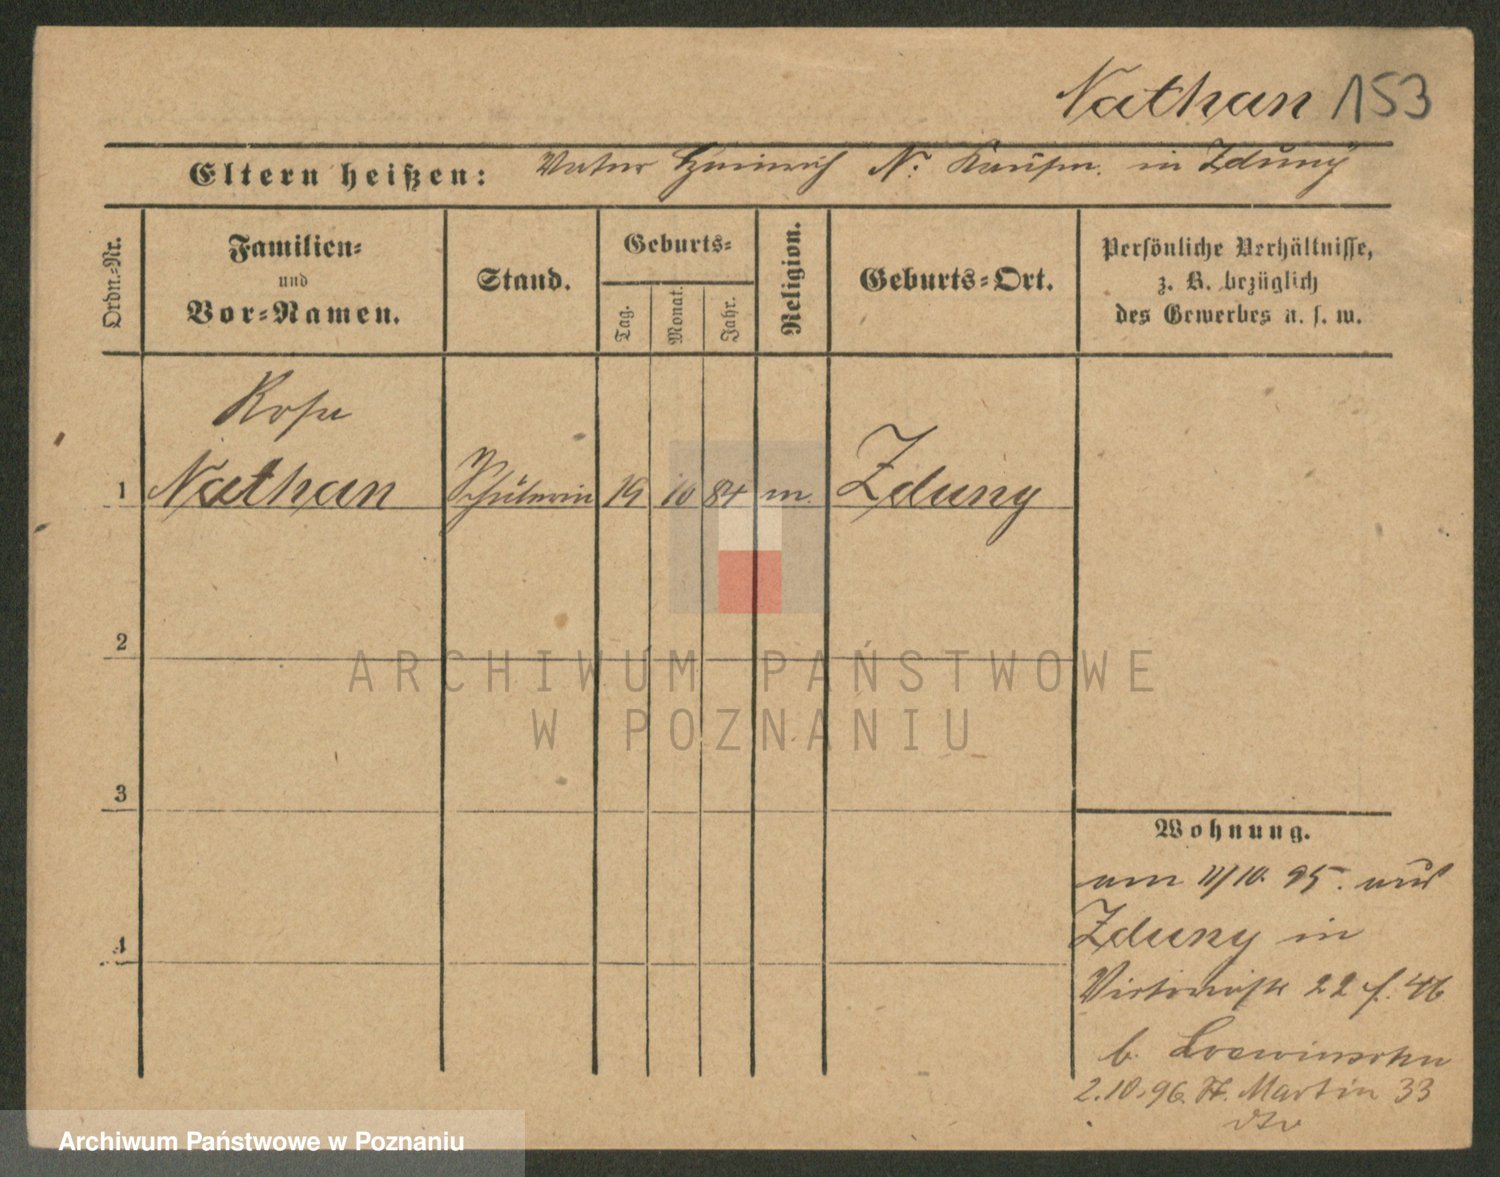 Nathan 153
Eltern heißen: Vater Heinrich N. Kaufm. in Zduny
Ordn.-Nr.
Familien-
und
Vor-Namen.
Stand.
Geburts-
Tag.
Monat.
Jahr.
Religion.
Geburts-Ort.
Persönliche Verhältnisse,
z. B. bezüglich
des Gewerbes u. s. w.
Rosa
1 Nathan Schülerin 19 10 84 m. Zduny
2
3
4
ARCHIWUM PAŃSTWOWE
W POZNANIU
Wohnung.
am 11/10. 95. aus
Zduny in
22 f. 46
b. Loewinsohn
2.10.96. St. Martin 33
dto
Archiwum Państwowe w Poznaniu